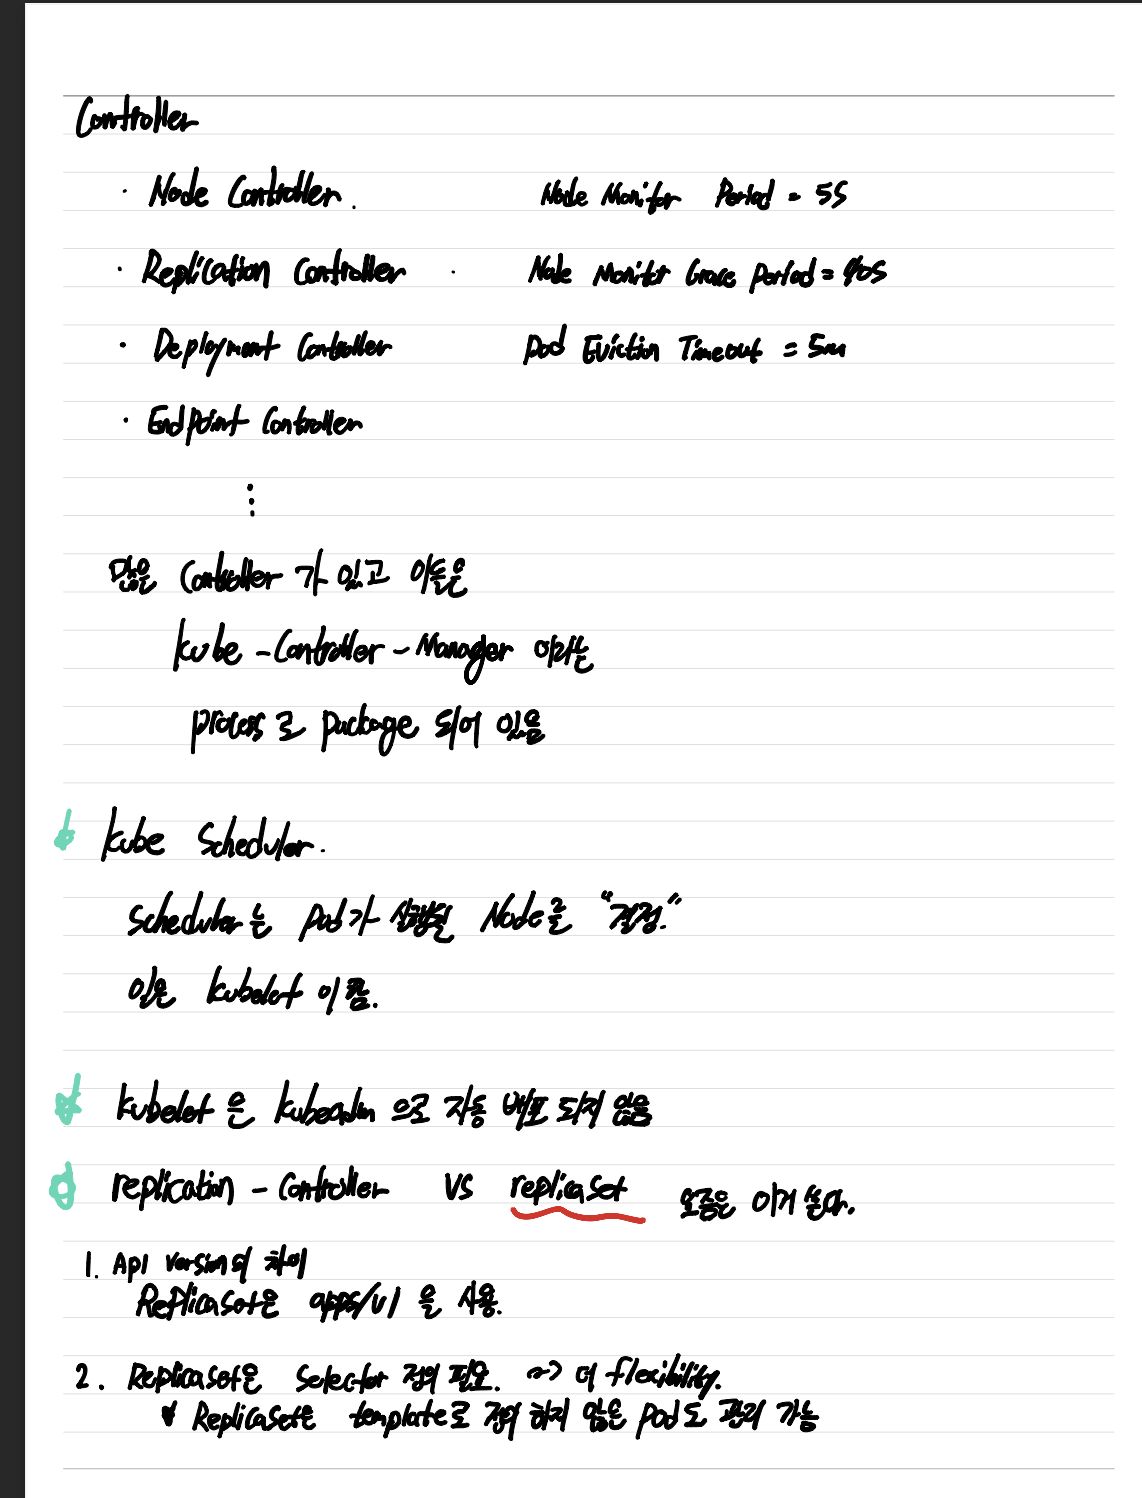 Controller
· Node Controller.    Node Monitor Period = 5s
· Replication Controller    · Node Monitor Grace Period = 40s
· Deployment Controller    Pod Eviction Timeout = 5m
· EndPoint Controller
⋮
많은 Controller 가 있고 이들은
kube - Controller - Manager 이라는
process 로 package 되어 있음
kube Scheduler.
Scheduler는 pod가 실행될 Node를 "결정."
일은 kubelet 이 함.
kubelet 은 kubeadm 으로 자동 배포 되지 않음
replication - Controller VS replicaset 요즘은 이거 쓴다.
1. Api version의 차이
Replicaset은 apps/v1 을 사용.
2. Replicaset은 Selector 정의 필요. ~> 더 flexibility.
Replicaset은 template로 정의 하지 않은 pod도 관리 가능